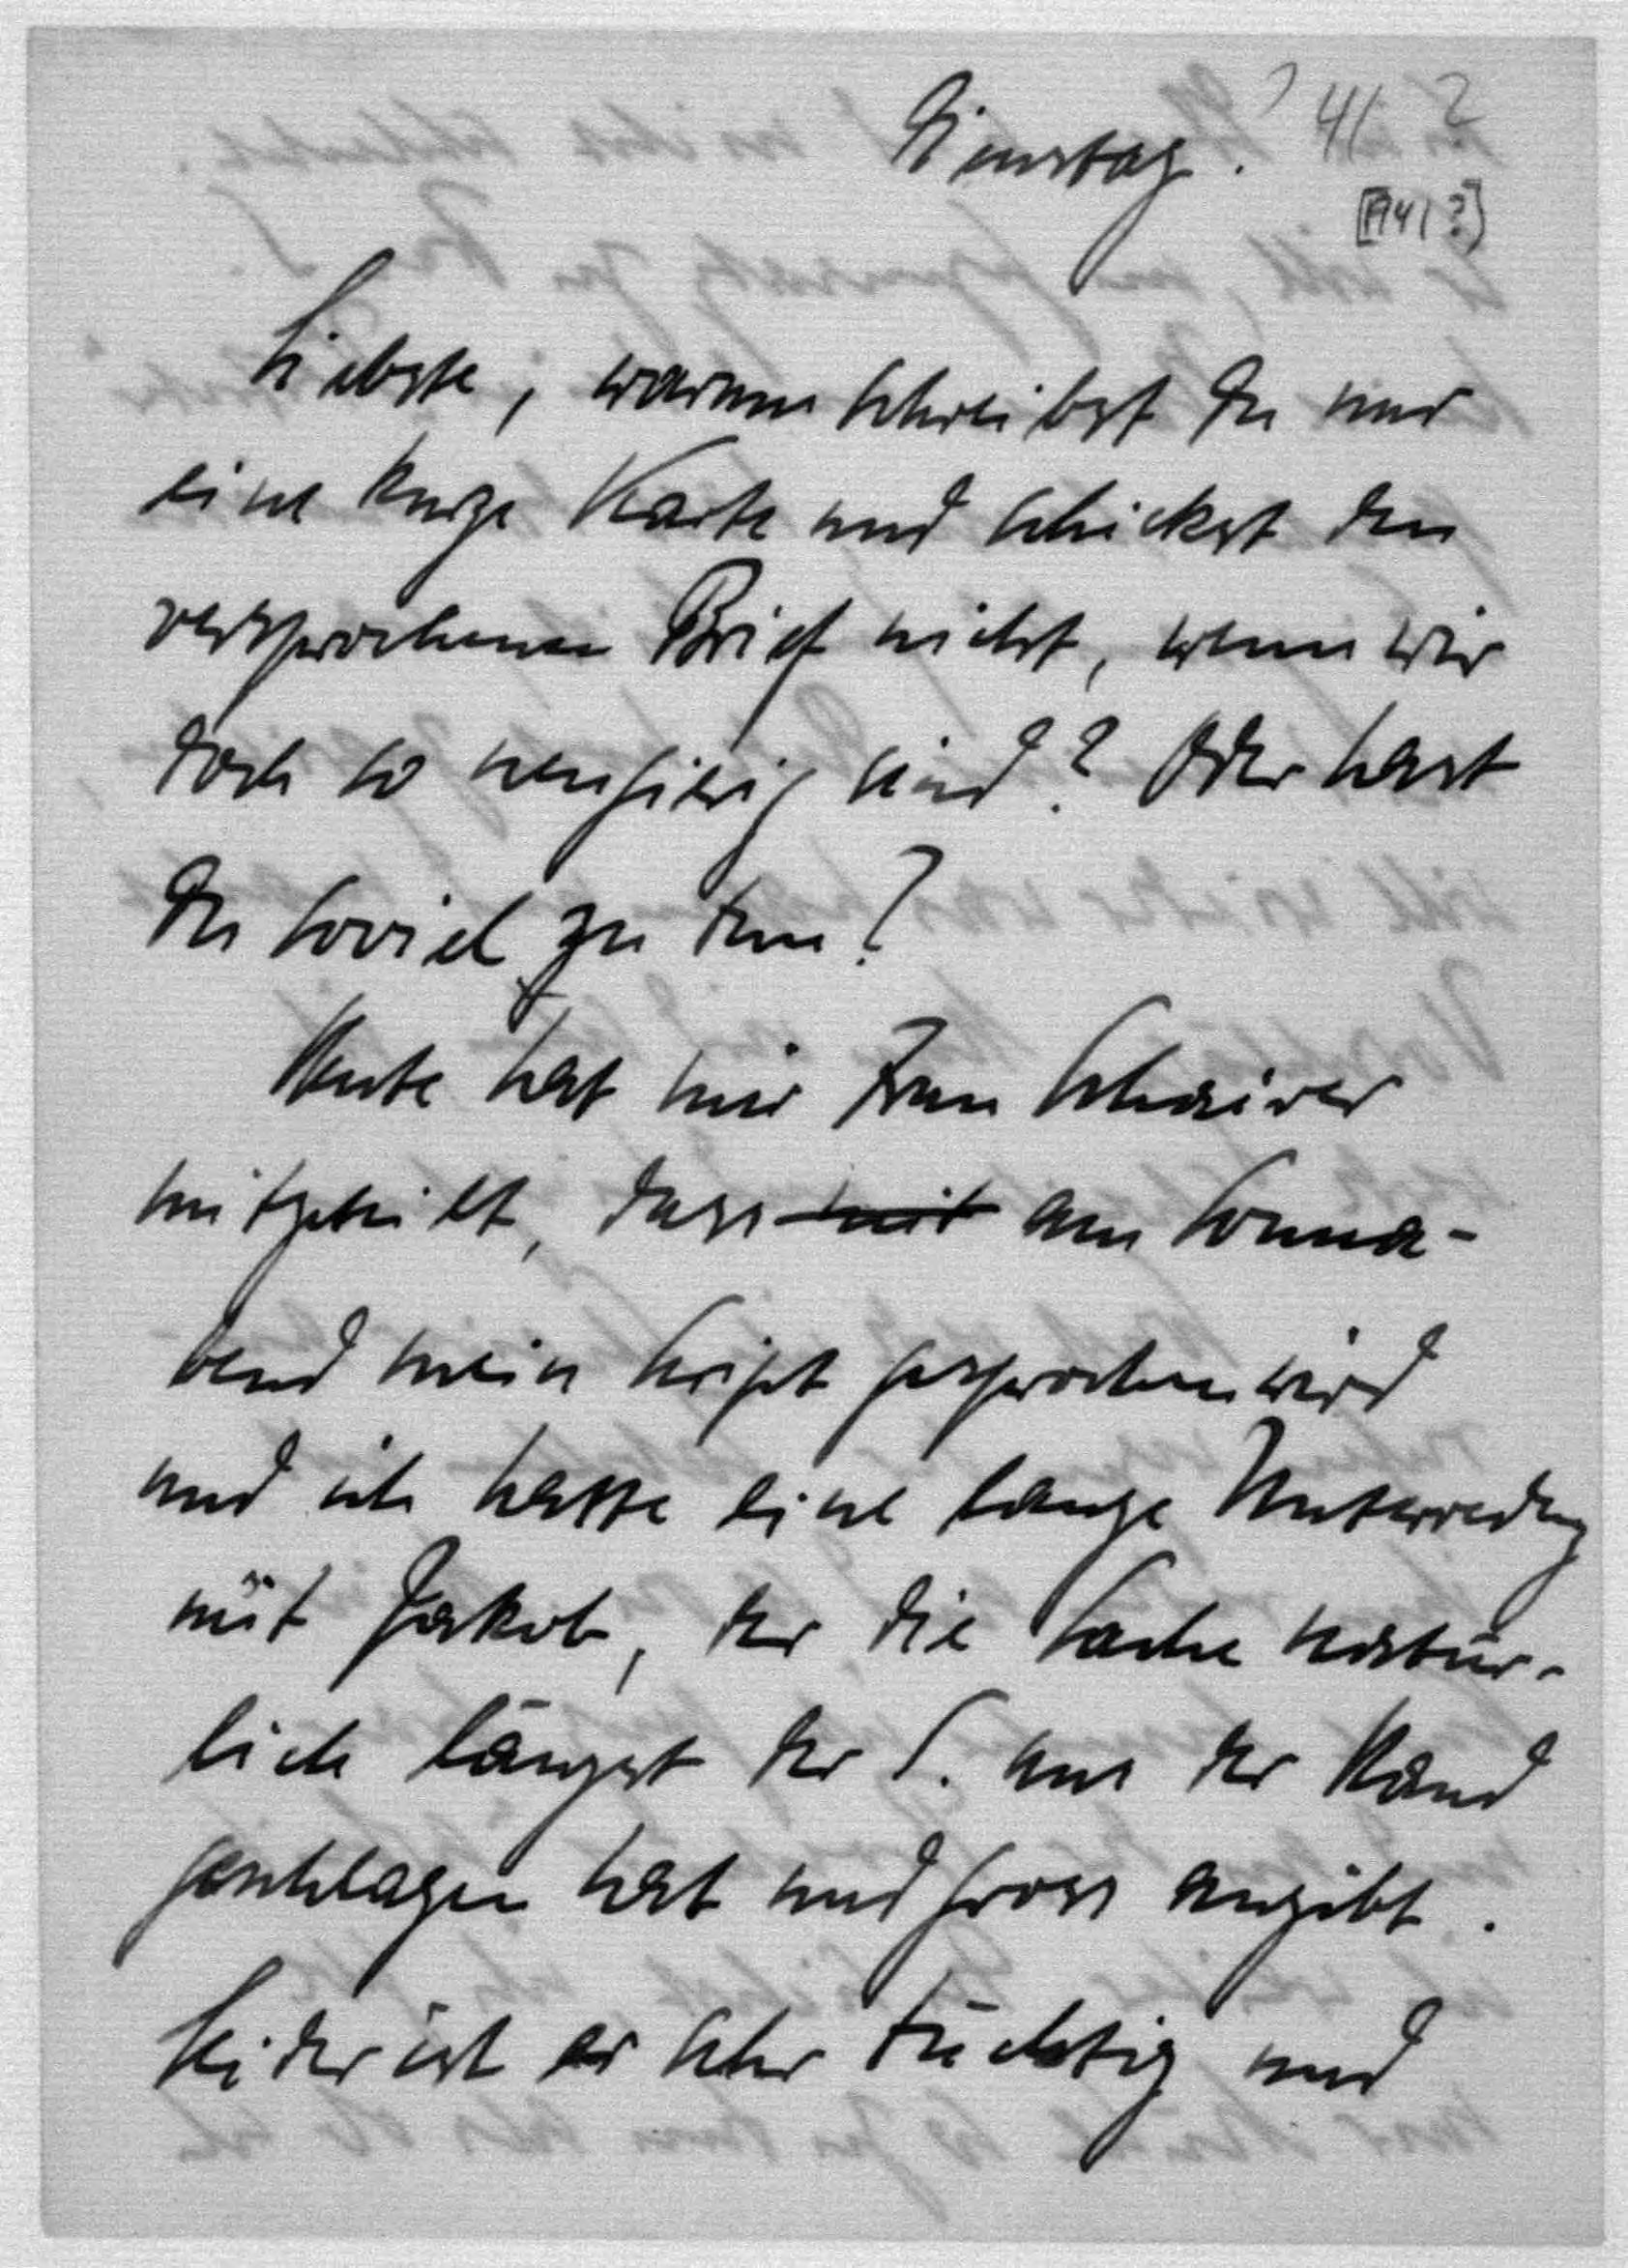 Dienstag. ? 41 ?
[1941?]
Liebste, warum schreibst Du nur
eine kurze Karte und schickst den
versprochenen Brief nicht, wenn wir
doch so neugierig sind? Oder hast
Du soviel zu tun?
Heute hat mir Frau Schairer
mitgeteilt, dass mit am Sonna-
bend mein Skript gesprochen wird
und ich hatte eine lange Unterredung
mit Jakob, der die Sache natür-
lich längst der S. aus der Hand
geschlagen hat und gross angibt.
Leider ist er sehr tüchtig und